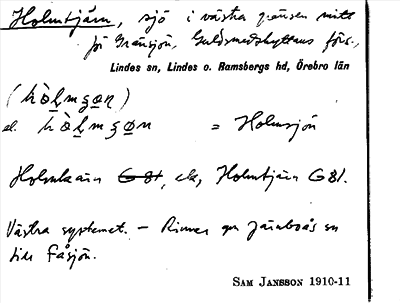 Holmtjärn, sjö i västra gränsen mitt
på Gränsjön, Guldsmedshyttans förs.,
Lindes sn, Lindes o. Ramsbergs hd, Örebro län
(hòl̲mʂɷn)
el. hòl̲mʂɷn = Holmsjön
Holmkärn G 81, ek, Holmtjärn GBl.
Västra systemet. – Rinner gm Järnboås sn
till Fåsjön.
SAM JANSSON 1910-11